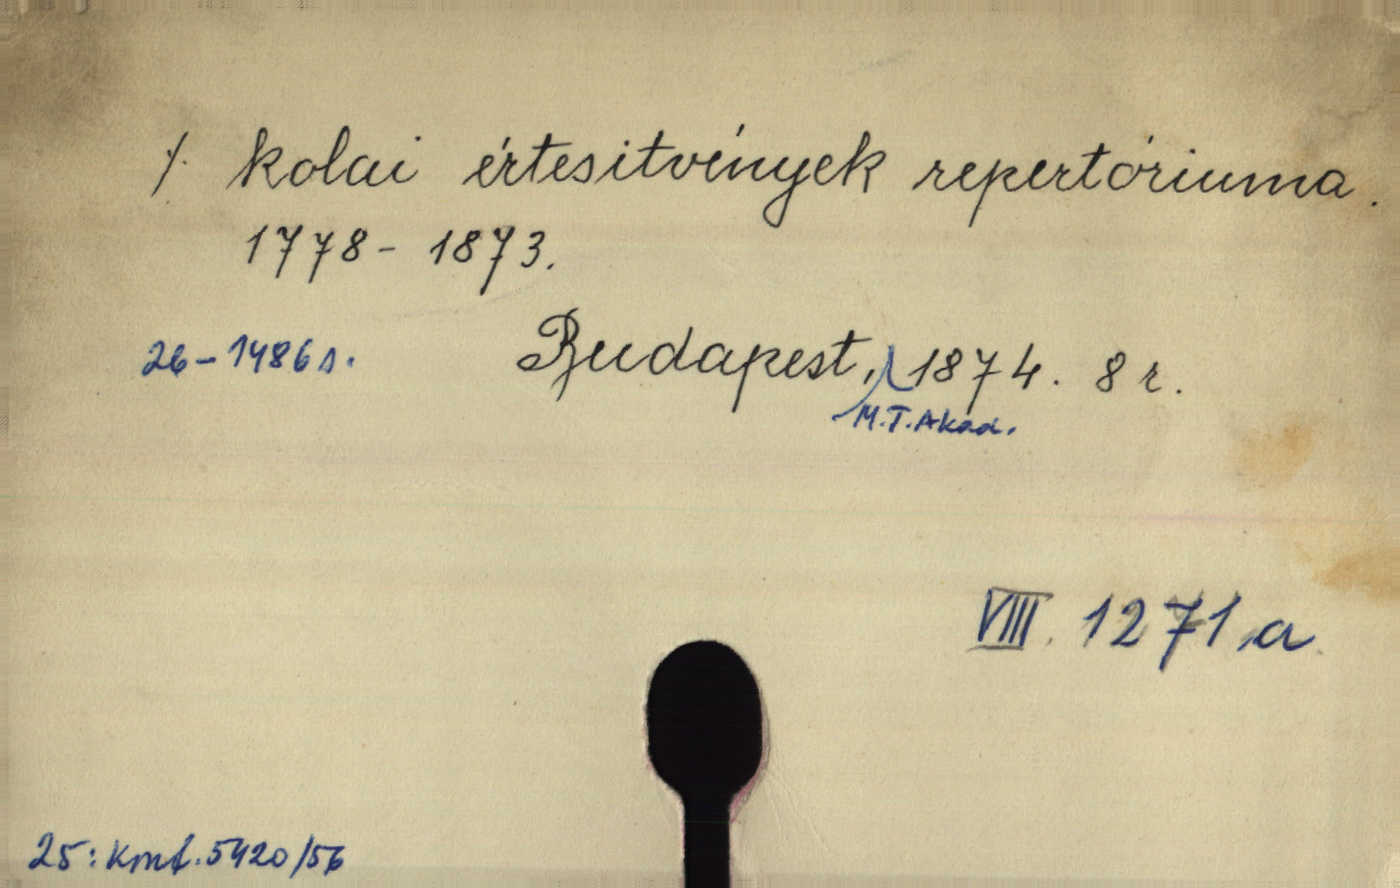 /. kolai értesitvények repertóriuma.
1778 - 1873.
26-1486 s. Budapest, 1874. 8 r.
M.T.Akad.
VIII. 1271 a
25: Kmf. 5420/56